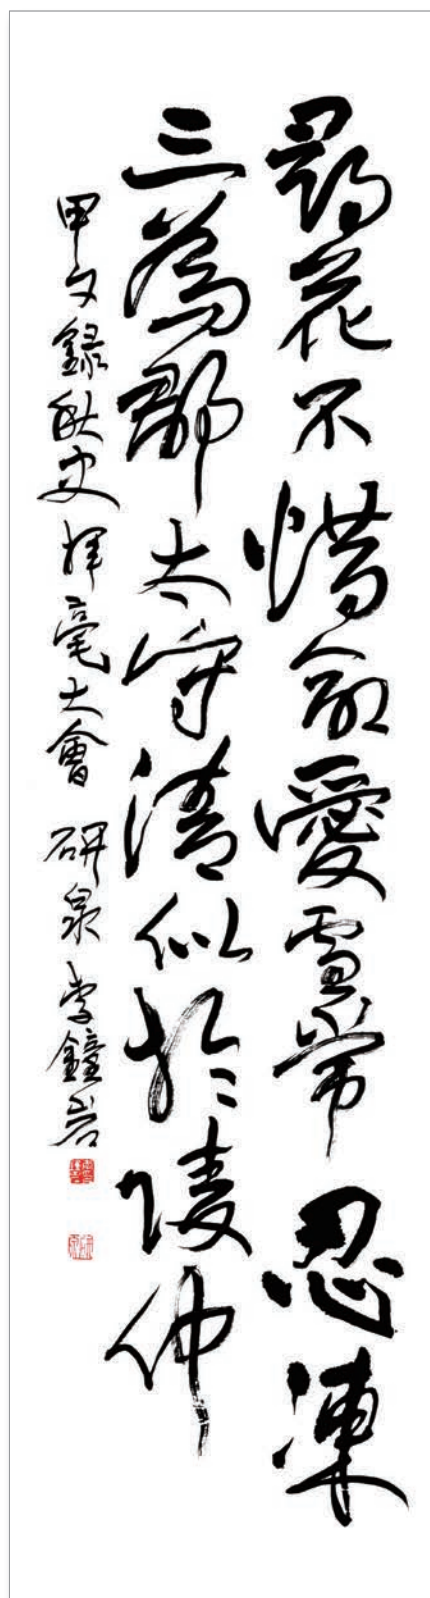 尋花不惜命愛雪常忍凍
三爲郡太守清似於陵仲
甲午錄秋史揮毫大會 硏泉 李鐘岩